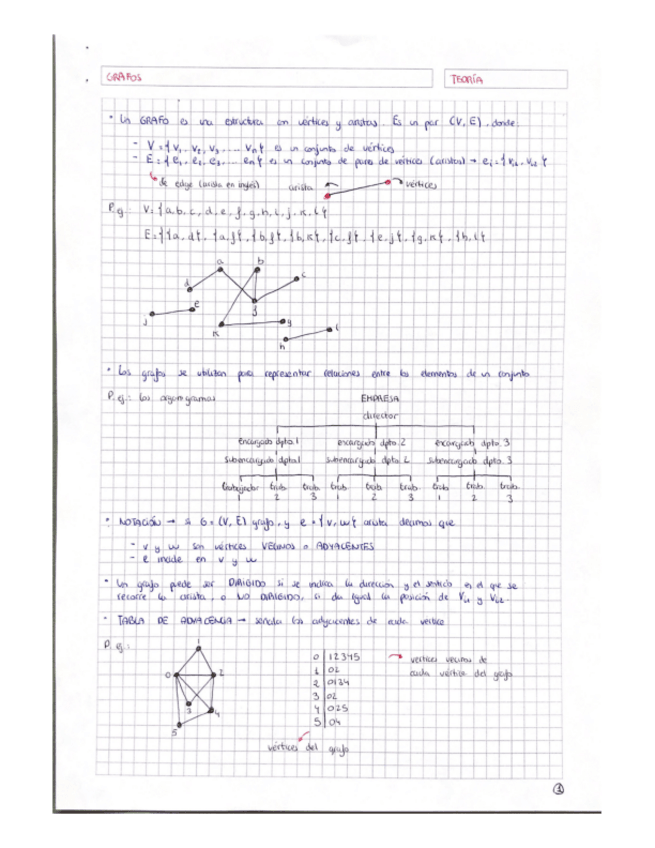 GRAFOS
TEORÍA
· Un GRAFO es una estructura con vértices y aristas. Es un par (V, E), donde:
- V = {v₁, v₂, v₃, ... vₙ} es un conjunto de vértices
- E = {e₁, e₂, e₃, ... eₙ} es un conjunto de pares de vértices (aristas) → eᵢ = {vᵢ₁, vᵢ₂}
de edge (arista en inglés)
arista
vértices
P.ej: V = {a, b, c, d, e, f, g, h, i, j, k, l}
E = {{a, d}, {a, f}, {b, f}, {b, k}, {c, f}, {e, j}, {g, k}, {h, l}
a b
c
d
e
f
j
k
g
l
h
· Los grafos se utilizan para representar relaciones entre los elementos de un conjunto
P. ej.: los organigramas
EMPRESA
director
encargado dpto. 1 encargado dpto. 2 encargado dpto. 3
subencargado dpto. 1 subencargado dpto. 2 subencargado dpto. 3
trabajador trab. trab. trab. trab. trab. trab. trab. trab.
2 3 1 2 3 1 2 3
· NOTACIÓN → si G = (V, E) grafo, y e = {v, w} arista decimos que
- v y w son vértices VECINOS o ADYACENTES
- e incide en v y w
· Un grafo puede ser DIRIGIDO si se indica la dirección y el sentido en el que se
recorre la arista, o NO DIRIGIDO, si da igual la posición de Vᵢ₁ y Vᵢ₂.
· TABLA DE ADYACENCIA → señala los adyacentes de cada vértice
P. ej.:
1
0 2
3
4
5
0 | 12345
1 | 02
2 | 0134
3 | 02
4 | 025
5 | 04
vértices vecinos de
cada vértice del grafo
vértices del grafo
1